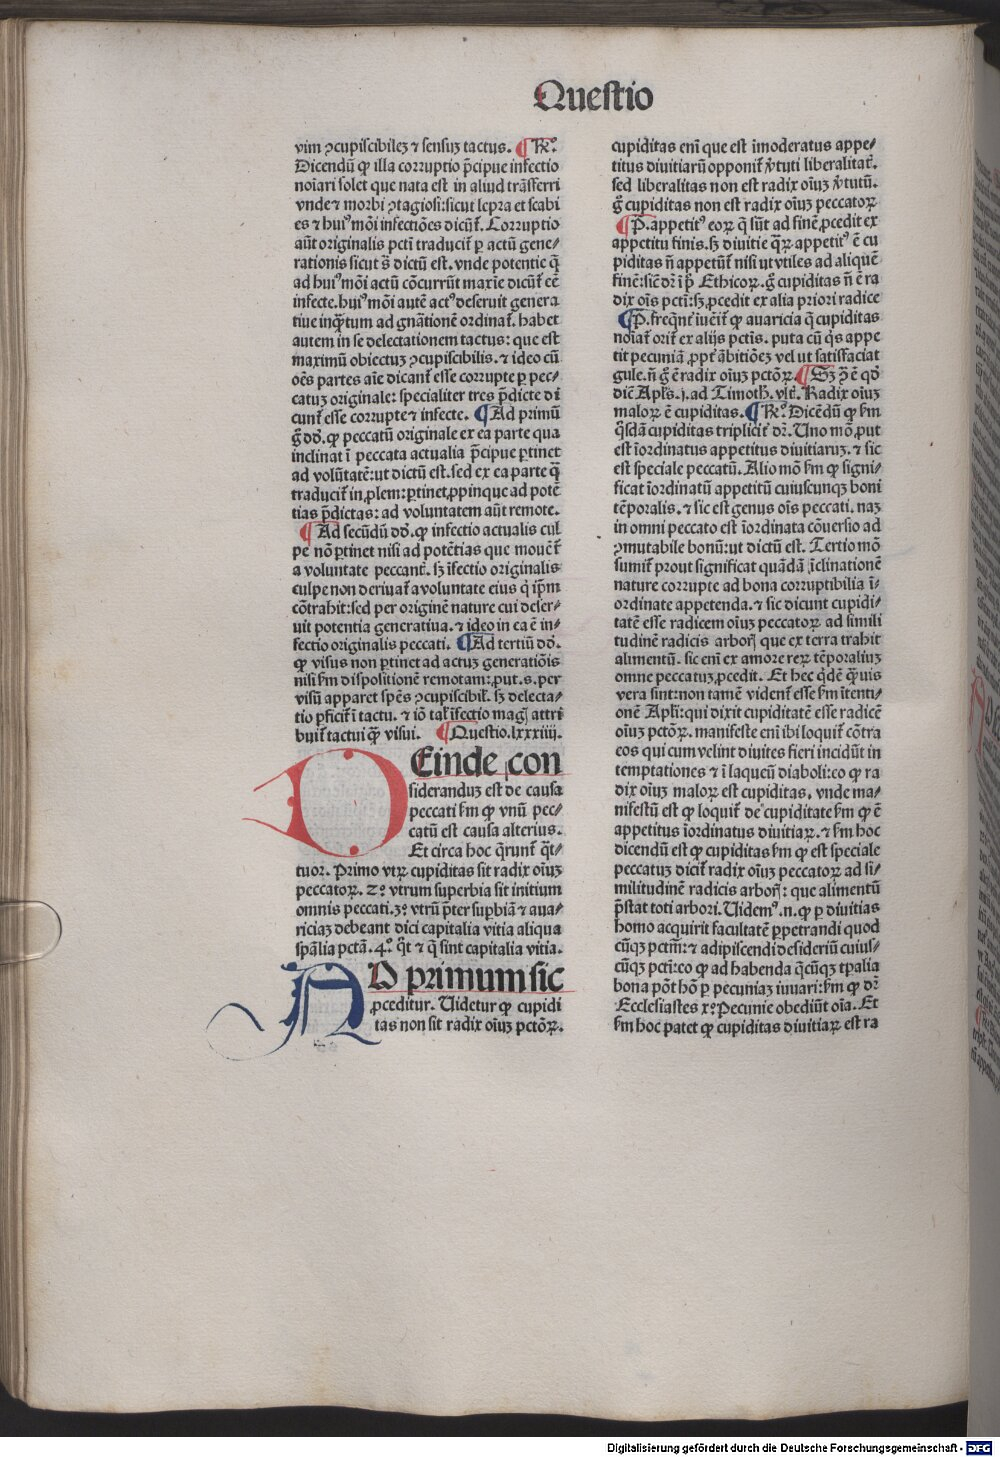 Questio
vim ꝯcupiscibilez ⁊ sensuz tactus. ¶ Rꝰ.
Dicendū ꝙ illa corruptio p̄cipue infectio
noīari solet que nata est in aliud trāsferri
vnde ⁊ morbi ꝯtagiosi: sicut lepra et scabi
es ⁊ huiꝰ mōi infectiōes dicūt̄. Corruptio
aūt originalis pcti traducit̄ ꝑ actū gene⸗
rationis sicut s̄ dictū est. vnde potentie q̄
ad huiꝰ mōi actū cōcurrūt maxīe dicūt̄ eē
infecte. huiꝰ mōi autē actꝰ deseruit genera
tiue inq̄tum ad gnātionē ordinat̄. habet
autem in se delectationem tactus: que est
maximū obiectuz ꝯcupiscibilis. ⁊ ideo cū
oēs partes aīe dicant̄ esse corrupte ꝑ pec⸗
catuz originale: specialiter tres p̄dicte di
cunt̄ esse corrupte ⁊ infecte. ¶ Ad primū
g̊ dd. ꝙ peccatū originale ex ea parte qua
inclinat ī peccata actualia p̄cipue ꝑtinet
ad volūtatē: ut dictū est. sed ex ea parte q̄
traducit̄ in ꝓlem: ꝑtinet ꝓpinque ad potē
tias p̄dictas: ad voluntatem aūt remote.
¶ Ad secūdū dd. ꝙ infectio actualis cul
pe nō ꝑtinet nisi ad potētias que mouēt̄
a voluntate peccant̄. sꝫ īfectio originalis
culpe non deriuat̄ a voluntate eius q̄ ip̄m
cōtrahit: sed per originē nature cui deser⸗
uit potentia generatiua. ⁊ ideo in ea ē in⸗
fectio originalis peccati. ¶ Ad tertiū dd.
ꝙ visus non ꝑtinet ad actuz generatiōis
nisi km dispositionē remotam: ꝓut .s. per
visū apparet spēs ꝯcupiscibil̄. sꝫ delecta⸗
tio ꝑficit̄ ī tactu. ⁊ iō tal̄ īfectio magꝭ attri
buit̄ tactui q̄ visui. ¶ Questio. lxxxiiij.
DEinde con
sideranduz est de causa
peccati km ꝙ vnū pec⸗
catū est causa alterius.
Et circa hoc q̄runt̄ q̄t⸗
tuor. Primo vtꝝ cupiditas sit radix oīuz
peccatoꝝ. 2º vtrum superbia sit initium
omnis peccati. 3º vtrū p̄ter supbiā ⁊ aua⸗
riciaz debeant dici capitalia vitia aliqua
spālia pctā. 4º q̄t ⁊ q̄ sint capitalia vitia.
AD primum sic
ꝓceditur. Uidetur ꝙ cupidi
tas non sit radix oīuz pctōꝝ.
cupiditas enī que est īmoderatus appe⸗
titus diuitiarū opponit̄ v̄tuti liberalitat̄.
sed liberalitas non est radix oīuz v̄tutū.
g̊ cupiditas non est radix oīuz peccatoꝝ
¶ P. appetitꝰ eoꝝ q̄ sūt ad finē ꝓcedit ex
appetitu finis. sꝫ diuitie qꝝ appetitꝰ ē cu
piditas n̄ appetūt̄ nisi ut vtiles ad aliquē
finē: sic̄ dr̄ ī p̄ Ethicoꝝ. g̊ cupiditas n̄ ē ra
dix oīs pcti: sꝫ ꝓcedit ex alia priori radice
¶ P. freqn̄t̄ iuēit̄ ꝙ auaricia q̄ cupiditas
noīat̄ orit̄ ex alijs pctīs. puta cū q̄s appe
tit pecuniā ꝓpt̄ ābitiōez vel ut satisfaciat
gule. n̄ g̊ ē radix oīuz pctōꝝ. ¶ Sꝫ ꝯ̄ ē qd̄
dic̄ Apl̄s .j. ad Timoth̄. vlt̄. Radix oīuz
maloꝝ ē cupiditas. ¶ Rꝰ. Dicēdū ꝙ km
q̄sdā cupiditas triplicit̄ dr̄. Uno mō ꝓut
est īordinatus appetitus diuitiaruz. ⁊ sic
est speciale peccatū. Alio mō km ꝙ signi⸗
ficat īordinatū appetitū cuiuscunqꝫ boni
tēporalis. ⁊ sic est genus oīs peccati. naz
in omni peccato est īordinata cōuersio ad
ꝯmutabile bonū: ut dictū est. Tertio mō
sumit̄ prout significat quādā īclinationē
nature corrupte ad bona corruptibilia ī⸗
ordinate appetenda. ⁊ sic dicunt cupidi⸗
tatē esse radicem oīuz peccatoꝝ ad simili
tudinē radicis arborꝭ que ex terra trahit
alimentū. sic enī ex amore reꝝ tēporaliuz
omne peccatuz ꝓcedit. Et hec q̄dē q̄uis
vera sint: non tamē vident̄ esse km ītenti⸗
onē Apl̄i: qui dixit cupiditatē esse radicē
oīuz pctōꝝ. manifeste enī ibi loquit̄ cōtra
eos qui cum velint diuites fieri incidūt in
temptationes ⁊ ī laqueū diaboli: eo ꝙ ra
dix oīuz maloꝝ est cupiditas. vnde ma⸗
nifestū est ꝙ loquit̄ de cupiditate km ꝙ ē
appetitus īordinatus diuitiaꝝ. ⁊ km hoc
dicendū est ꝙ cupiditas km ꝙ est speciale
peccatuz dicit̄ radix oīuz peccatoꝝ ad si⸗
militudinē radicis arborꝭ: que alimentū
p̄stat toti arbori. Uidemꝰ .n. ꝙ ꝑ diuitias
homo acquirit facultatē ꝑpetrandi quod
cūqꝫ pctm̄: ⁊ adipiscendi desideriū cuius⸗
cūqꝫ pcti: eo ꝙ ad habenda q̄cūqꝫ tꝑalia
bona pōt hō ꝑ pecuniaz iuuari: km ꝙ dr̄
Ecclesiastes xº Pecunie obediūt oīa. Et
km hoc patet ꝙ cupiditas diuitiaꝝ est ra
Digitalisierung gefördert durch die Deutsche Forschungsgemeinschaft - DFG